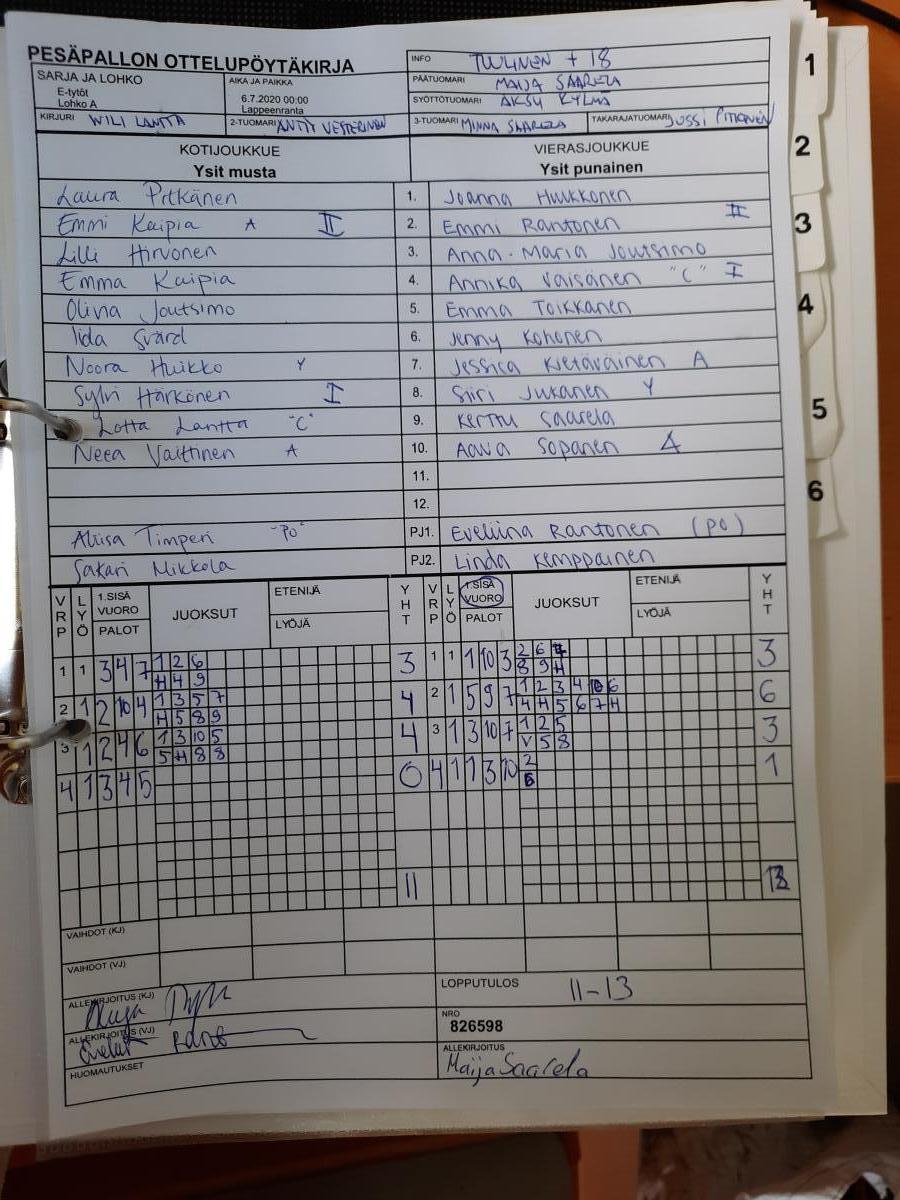 PESÄPALLON OTTELUPÖYTÄKIRJA
INFO TUULINEN + 18
SARJA JA LOHKO AIKA JA PAIKKA PÄÄTUOMARI MAIJA SAARELA
E-tytöt 6.7.2020 00:00 SYÖTTÖTUOMARI AKSU KYLMÄ
Lohko A Lappeenranta
KIRJURI WILI LANTTA 2-TUOMARI ANTTI VESTERINEN 3-TUOMARI MINNA SAARELA TAKARAJATUOMARI JUSSI PITKÄNEN
KOTIJOUKKUE VIERASJOUKKUE
Ysit musta Ysit punainen
Laura Pitkänen 1. Joanna Huukkonen
Emmi Kaipia A II 2. Emmi Rantonen II
Lilli Hirvonen 3. Anna-Maria Joutsimo
Emma Kaipia 4. Annika Väisänen "C" I
Olivia Joutsimo 5. Emma Toikkanen
Iida Svärd 6. Jenny Kohonen
Noora Huikko Y 7. Jessica Kietäväinen A
Sylvi Härkönen I 8. Siiri Jukanen Y
Lotta Lantta "C" 9. Kerttu Saarela
Neea Valttinen A 10. Aava Sopanen A
11.
12.
Aliisa Timperi "PO" PJ1. Eveliina Rantonen (PO)
Sakari Mikkola PJ2. Linda Kemppainen
VRP LYÖ 1.SISÄ VUORO PALOT JUOKSUT ETENIJÄ LYÖJÄ YHT VRP LYÖ 1.SISÄ VUORO PALOT JUOKSUT ETENIJÄ LYÖJÄ YHT
1 1 3 4 7 1 2 6 3 1 1 1 10 3 2 6 3
H 4 9 8 9 H
2 1 2 10 4 1 3 5 7 4 2 1 5 9 7 1 2 3 4 10 6 6
H 5 8 9 4 H 5 6 7 H
3 1 2 4 6 1 3 10 5 4 3 1 3 10 7 1 2 5 3
5 H 8 8 V 5 8
4 1 3 4 5 0 4 1 1 3 10 2 1
6
11 13
VAIHDOT (KJ)
VAIHDOT (VJ)
ALLEKIRJOITUS (KJ) LOPPUTULOS 11-13
ALLEKIRJOITUS (VJ) NRO
826598
HUOMAUTUKSET ALLEKIRJOITUS
Maija Saarela